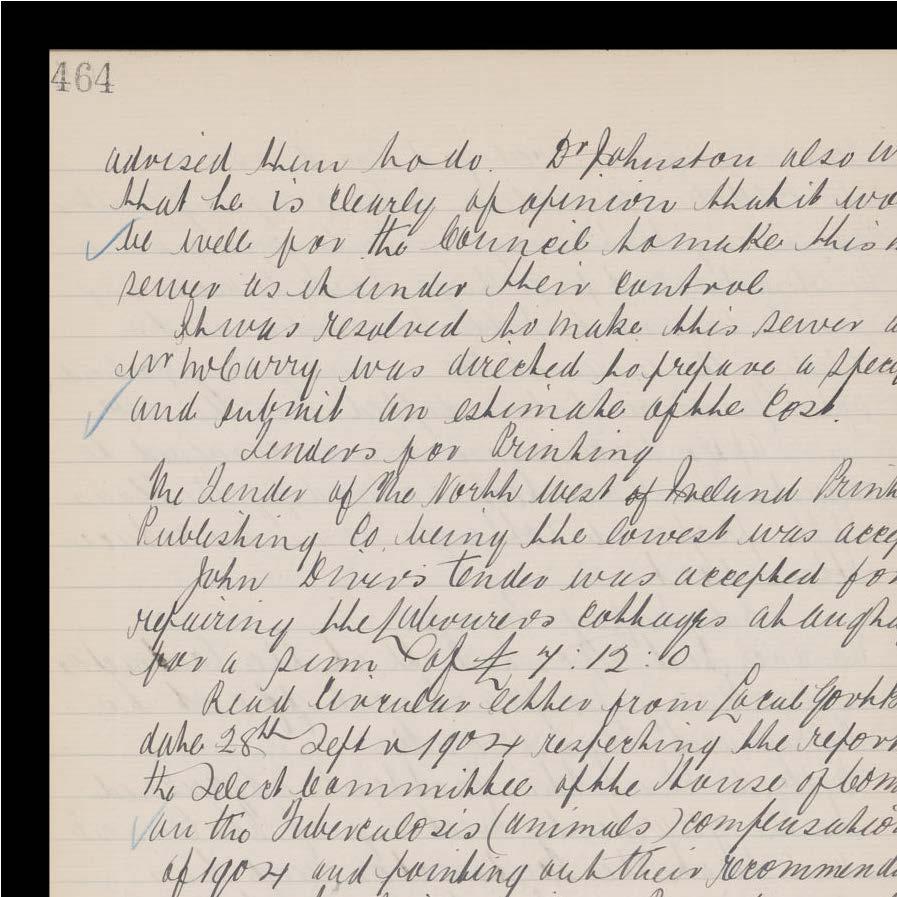 464
advised them to do. Dr Johnston also
that he is clearly of opinion that it
be well for the Council to make this
sewer as it under their control
It was resolved to make this sewer
Mr McCarry was directed to prepare a
and submit an estimate of the Cost.
Tenders for Printing
The Tender of the North West of Ireland
Publishing Co. being the lowest was
John Diver's tender was accepted for
repairing the Labourers cottages at
for a sum of £7:12:0
Read Circular letter from Local Govt B
date 28th Septr 1904 respecting the
the Select Committee of the House of
on the Tuberculosis (animals) compensation
of 1904 and pointing out their